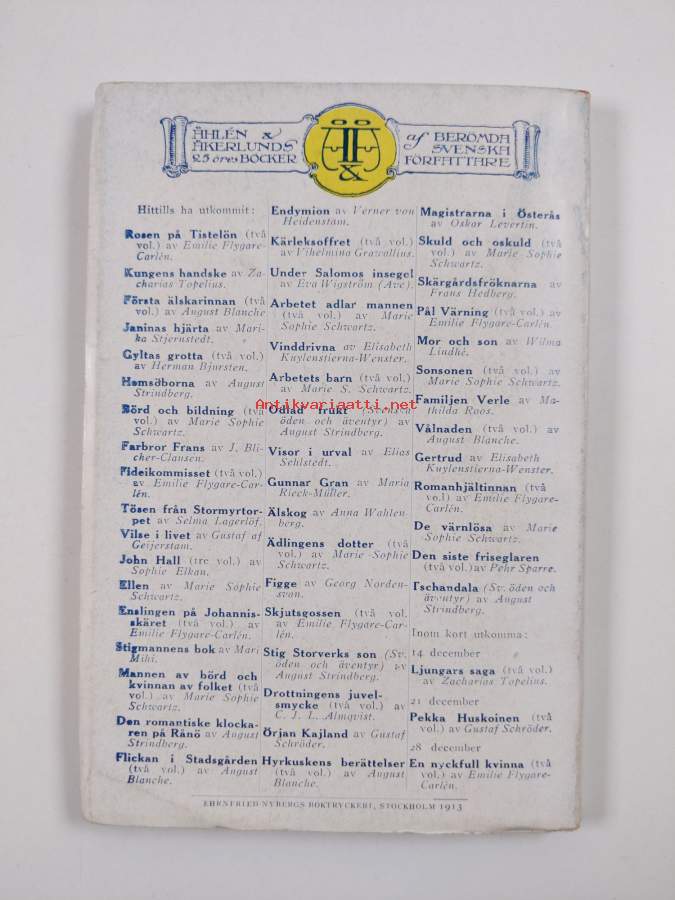 ÅHLÉN &
ÅKERLUNDS
25 öres BÖCKER
af BERÖMDA
SVENSKA
FÖRFATTARE
Hittills ha utkommit:
Rosen på Tistelön (två
vol.) av Emilie Flygare-
Carlén.
Kungens handske av Za-
charias Topelius.
Första älskarinnan (två
vol.) av August Blanche
Janinas hjärta av Mari-
ka Stjernstedt.
Gyltas grotta (två vol.)
av Herman Bjursten.
Hemsöborna av August
Strindberg.
Börd och bildning (två
vol.) av Marie Sophie
Schwartz.
Farbror Frans av J. Bli-
cher-Clausen.
Fideikommisset (två vol.)
av Emilie Flygare-Car-
lén.
Tösen från Stormyrtor-
pet av Selma Lagerlöf.
Vilse i livet av Gustaf af
Geijerstam.
John Hall (tre vol.) av
Sophie Elkan.
Ellen av Marie Sophie
Schwartz.
Enslingen på Johannis-
skäret (två vol.) av
Emilie Flygare-Carlén.
Stigmannens bok av Mari
Mihi.
Mannen av börd och
kvinnan av folket (två
vol.) av Marie Sophie
Schwartz.
Den romantiske klocka-
ren på Rånö av August
Strindberg.
Flickan i Stadsgården
(två vol.) av August
Blanche.
Endymion av Verner von
Heidenstam.
Kärleksoffret (två vol.)
av Vilhelmina Gravallius.
Under Salomos insegel
av Eva Wigström (Ave).
Arbetet adlar mannen
(två vol.) av Marie
Sophie Schwartz.
Vinddrivna av Elisabeth
Kuylenstierna-Wenster.
Arbetets barn (två vol.)
av Marie S. Schwartz.
Odlad frukt (Svenska
öden och äventyr) av
August Strindberg.
Visor i urval av Elias
Sehlstedt.
Gunnar Gran av Maria
Rieck-Müller.
Älskog av Anna Wahlen-
berg.
Ädlingens dotter (två
vol.) av Marie Sophie
Schwartz.
Figge av Georg Norden-
svan.
Skjutsgossen (två vol.
av Emilie Flygare-Car-
lén.
Stig Storverks son (Sv.
öden och äventyr) av
August Strindberg.
Drottningens juvel-
smycke (två vol.) av
C. J. L. Almqvist.
Örjan Kajland av Gustaf
Schröder.
Hyrkuskens berättelser
(två vol.) av August
Blanche.
Magistrarna i Österås
av Oskar Levertin.
Skuld och oskuld (två
vol.) av Marie Sophie
Schwartz.
Skärgårdsfröknarna av
Frans Hedberg.
Pål Värning (två vol.) av
Emilie Flygare-Carlén.
Mor och son av Wilma
Lindhé.
Sonsonen (två vol.) av
Marie Sophie Schwartz.
Familjen Verle av Ma-
thilda Roos.
Vålnaden (två vol.) av
August Blanche.
Gertrud av Elisabeth
Kuylenstierna-Wenster.
Romanhjältinnan (två
vol.) av Emilie Flygare-
Carlén.
De värnlösa av Marie
Sophie Schwartz.
Den siste friseglaren
(två vol.) av Pehr Sparre.
Tschandala (Sv. öden och
äventyr) av August
Strindberg.
Inom kort utkomma:
14 december
Ljungars saga (två vol.)
av Zacharias Topelius.
21 december
Pekka Huskoinen (två
vol.) av Gustaf Schröder.
28 december
En nyckfull kvinna (två
vol.) av Emilie Flygare-
Carlén.
EHRNFRIED NYBERGS BOKTRYCKERI, STOCKHOLM 1913
Antikvariaatti.net